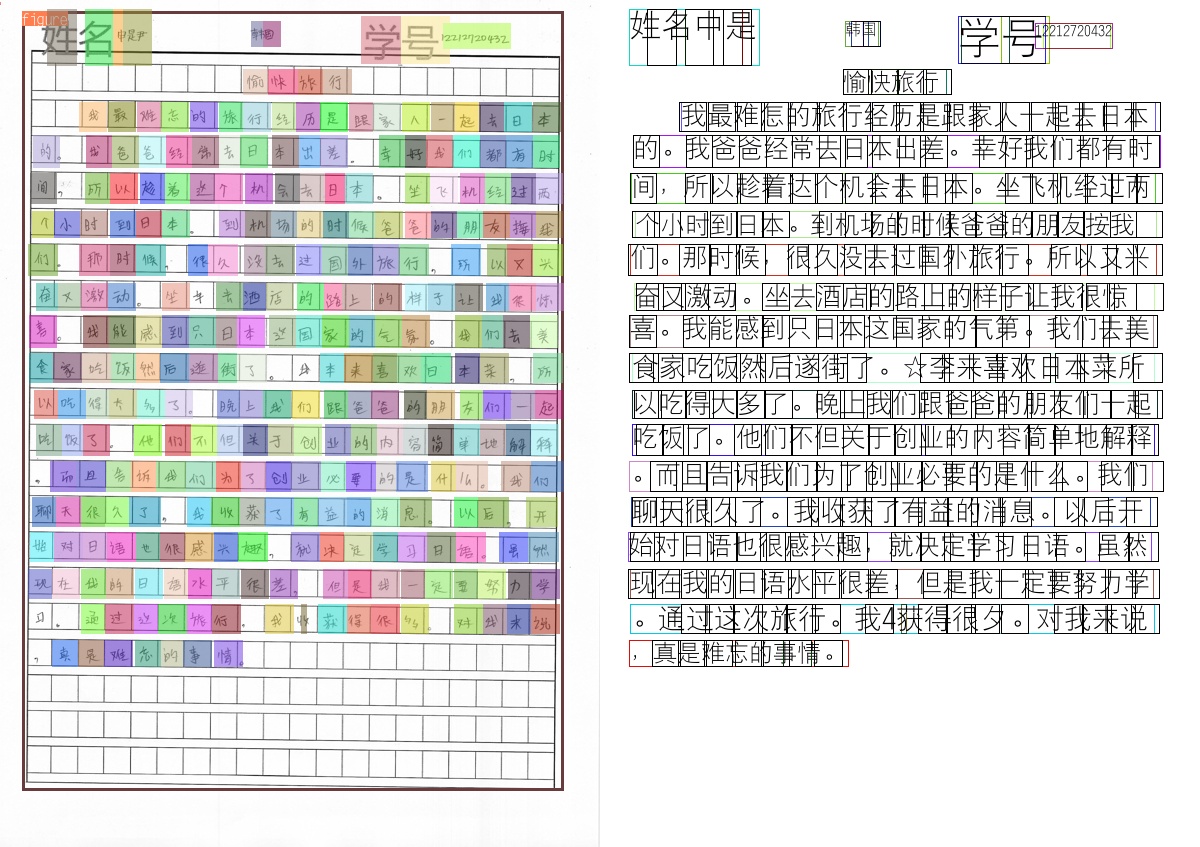 figure
姓名 申是尹 韩国 学号 12212720432
愉快旅行
我最难忘的旅行经历是跟家人一起去日本
的。我爸爸经常去日本出差。幸好我们都有时
间,所以趁着这个机会去日本。坐飞机经过两
个小时到日本。到机场的时候爸爸的朋友接我
们。那时候,很久没去过国外旅行,所以又兴
奋又激动。坐车去酒店的路上的样子让我很惊
喜。我能感到只日本这国家的气氛。我们去美
食家吃饭然后逛街了。本来喜欢日本菜,所
以吃得太多了。晚上我们跟爸爸的朋友们一起
吃饭了。他们不但关于创业的内容简单地解释
。而且告诉我们为了创业必要的是什么。我们
聊天很久了。我收获了有益的消息。以后,开
始对日语也很感兴趣,就决定学习日语。虽然
现在我的日语水平很差,但是我一定要努力学
习。通过这次旅行。我收获得很多。对我来说
,真是难忘的事情。
姓名中是 韩国 学号 12212720432
愉快旅行
我最难怎的旅行经历是跟家人一起去日本
的。我爸爸经常去日本出差。幸好我们都有时
间,所以趁着达个机会去日本。坐飞机经过两
个小时到日本。到机场的时候爸爸的朋友按我
们。那时候,很久没去过国外旅行。所以又米
奋又激动。坐去酒店的路上的样子让我很惊
喜。我能感到只日本这国家的气第。我们去美
食家吃饭然后遂街了。☆李来喜欢日本菜所
以吃得大多了。晚上我们跟爸爸的朋友们一起
吃饭了。他们不但关于创业的内容简单地解释
。而且告诉我们为了创业必要的是什么。我们
聊天很久了。我收获了有益的消息。以后开
始对日语也很感兴趣,就决定学习日语。虽然
现在我的日语水平很差,但是我一定要努力学
。通过这次旅行。我4获得很夕。对我来说
,真是难忘的事情。